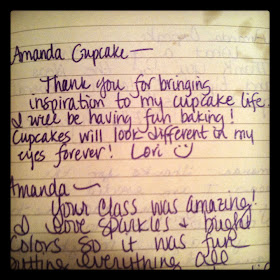 Amanda Cupcake —
Thank you for bringing
inspiration to my cupcake life
I will be having fun baking!
Cupcakes will look different in my
eyes forever! Lori
Amanda ~
Your class was amazing!
I love sparkles & bright
colors so it was fun
getting everything all